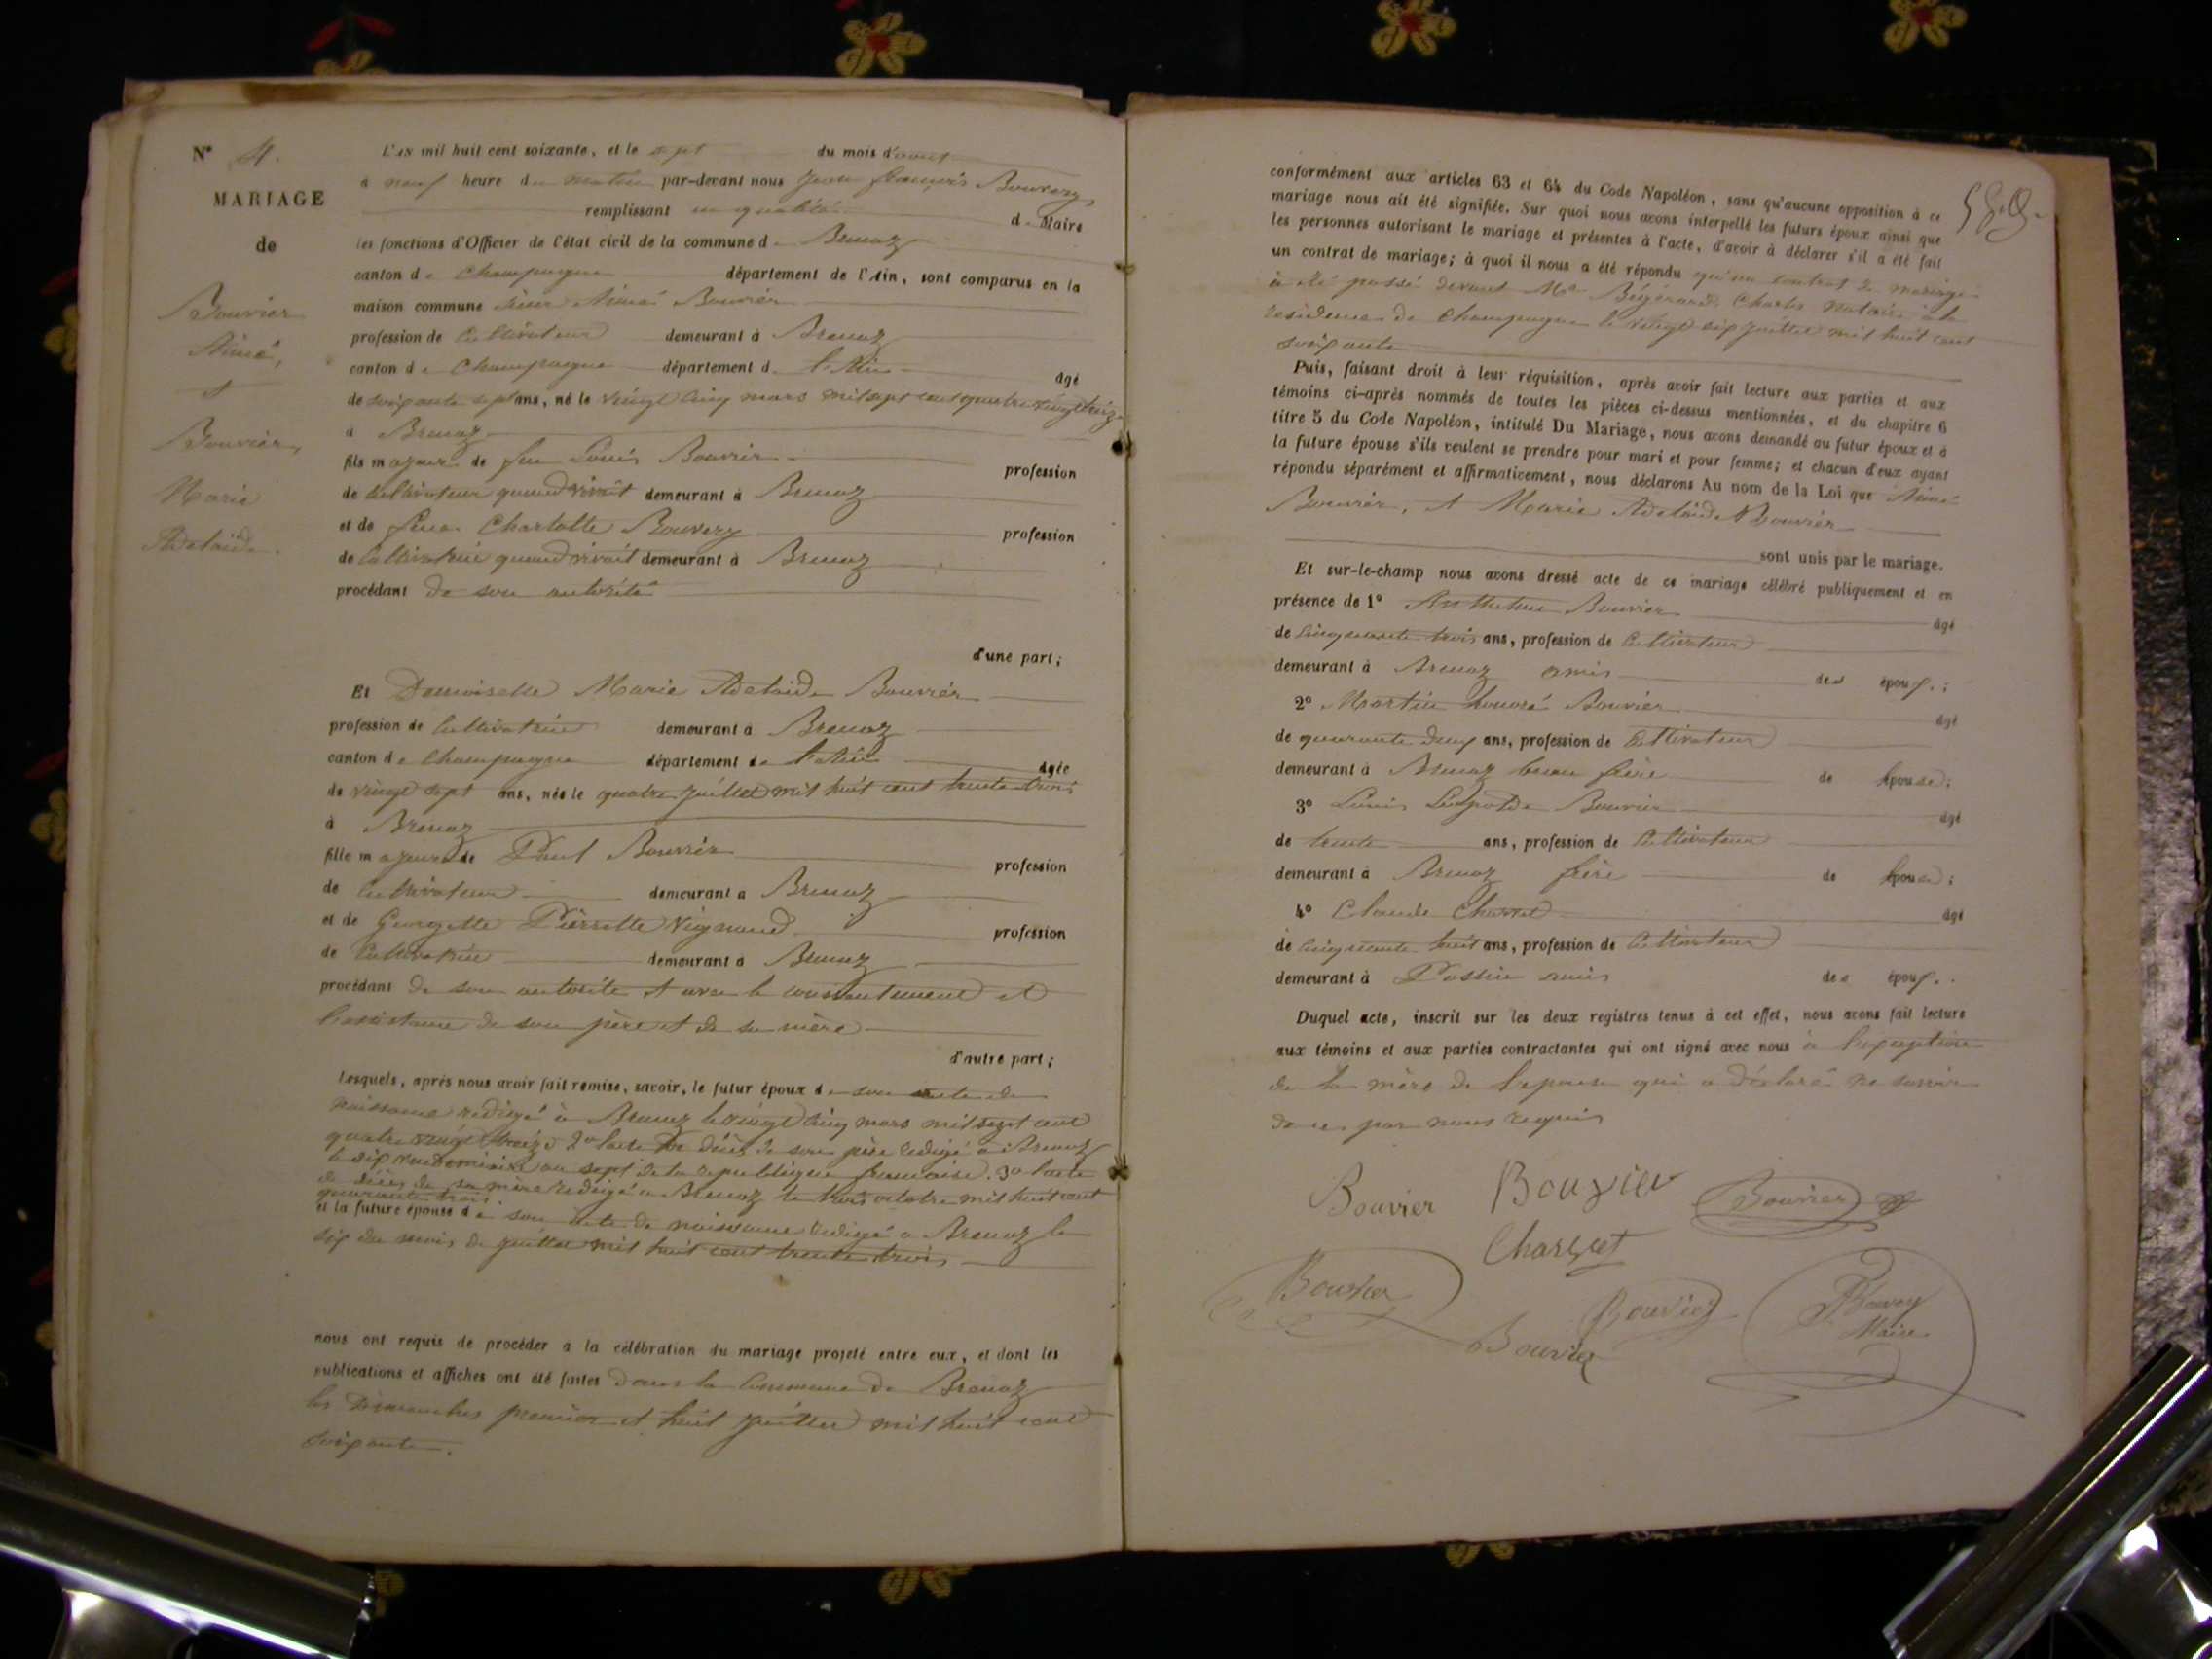 N° 4.
MARIAGE
de
Bouvier
Aimé,
et
Bouvier,
Marie
Adelaide.
L'AN mil huit cent soixante, et le sept du mois d'aout
à neuf heure du matin par-devant nous Jean françois Bouvery
remplissant en qualité d. Maire
les fonctions d'Officier de l'état civil de la commune de Brenaz
canton de Champagne département de l'Ain, sont comparus en la
maison commune sieur Aimé Bouvier
profession de Cultivateur demeurant à Brenaz
canton de Champagne département de l'Ain âgé
de soixante sept ans, né le vingt cinq mars mil sept cent quatre vingt treize
à Brenaz
fils majeur de feu Louis Bouvier profession
de Cultivateur quand vivait demeurant à Brenaz
et de feue Charlotte Bouvery profession
de Cultivatrice quand vivait demeurant à Brenaz
procédant de son autorité
d'une part;
Et Demoiselle Marie Adelaide Bouvier
profession de Cultivatrice demeurant à Brenaz
canton de Champagne département de l'Ain âgée
de vingt sept ans, née le quatre juillet mil huit cent trente trois
à Brenaz
fille majeure de Paul Bouvier profession
de Cultivateur demeurant à Brenaz
et de Georgette Pierrette Vignaud profession
de Cultivatrice demeurant à Brenaz
procédant de son autorité et avec le consentement et
l'assistance de son père et de sa mère
d'autre part;
Lesquels, après nous avoir fait remise, savoir, le futur époux de son acte de
naissance redigé à Brenaz le vingt cinq mars mil sept cent
quatre vingt treize 2° l'acte de décès de son père redigé à Brenaz
le dix vendemiaire an sept de la republique francaise. 3° l'acte
de décès de sa mère redigé à Brenaz le trois octobre mil huit cent
quarante trois.
et la future épouse de son acte de naissance redigé à Brenaz le
six du mois de juillet mil huit cent trente trois
nous ont requis de procéder à la célébration du mariage projeté entre eux, et dont les
publications et affiches ont été faites dans la Commune de Brenaz
les Dimanches premier et huit juillet mil huit cent
soixante.
conformément aux articles 63 et 64 du Code Napoléon, sans qu'aucune opposition à ce
mariage nous ait été signifiée. Sur quoi nous avons interpellé les futurs époux ainsi que
les personnes autorisant le mariage et présentes à l'acte, d'avoir à déclarer s'il a été fait
un contrat de mariage; à quoi il nous a été répondu qu'un contrat de mariage
a été passé devant Me Charles Notaire à la
residence de Champagne le vingt six juillet mil huit cent
soixante
Puis, faisant droit à leur réquisition, après avoir fait lecture aux parties et aux
témoins ci-après nommés de toutes les pièces ci-dessus mentionnées, et du chapitre 6
titre 5 du Code Napoléon, intitulé Du Mariage, nous avons demandé au futur époux et à
la future épouse s'ils veulent se prendre pour mari et pour femme; et chacun d'eux ayant
répondu séparément et affirmativement, nous déclarons Au nom de la Loi que Aimé
Bouvier, et Marie Adelaide Bouvier
sont unis par le mariage.
Et sur-le-champ nous avons dressé acte de ce mariage célébré publiquement et en
présence de 1° Anthelme Bouvier âgé
de Cinquante trois ans, profession de Cultivateur
demeurant à Brenaz amis des époux.;
2° Martin honoré Bouvier âgé
de quarante deux ans, profession de Cultivateur
demeurant à Brenaz beau frère de épouse;
3° Louis Léopolde Bouvier âgé
de trente ans, profession de Cultivateur
demeurant à Brenaz frère de épouse;
4° Claude Charvet âgé
de Cinquante huit ans, profession de Cultivateur
demeurant à Passin amis des époux.
Duquel acte, inscrit sur les deux registres tenus à cet effet, nous avons fait lecture
aux témoins et aux parties contractantes qui ont signé avec nous à l'exception
de la mère de l'epouse qui a déclaré ne savoir
de ce par nous requis
Bouvier Bouvier Bouvier
Charvet
Bouvier Bouvier Bouvery
Maire
Bouvier